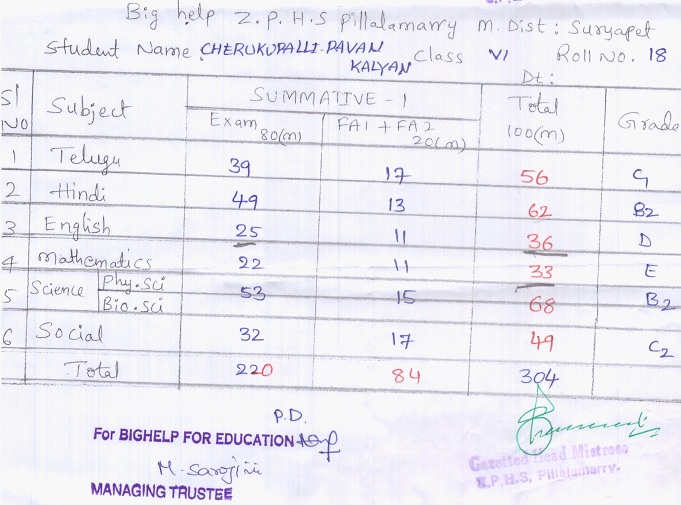 Big help Z.P.H.S Pillalamarry M. Dist: Suryapet
Student Name CHERUKUPALLI-PAVAN KALYAN Class VI Roll No. 18
Dt:
Sl No Subject SUMMATIVE - 1 Total 100(m) Grade
Exam 80(m) FA1 + FA2 20(m)
1 Telugu 39 17 56
2 Hindi 49 13 62 B2
3 English 25 11 36 D
4 Mathematics 22 11 33 E
5 Science Phy.sci Bio.sci 53 15 68 B2
6 Social 32 17 49 C2
Total 220 84 304
P.D.
For BIGHELP FOR EDUCATION
M. Sarojini
MANAGING TRUSTEE
Gazetted Head Mistress
Z.P.H.S, Pillalamarry.